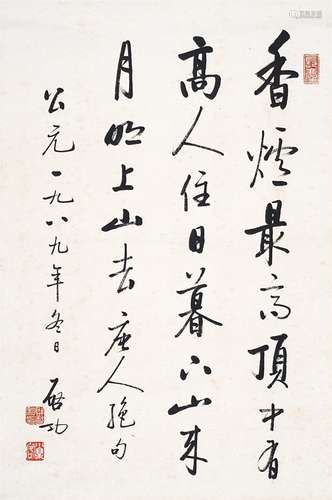 香爐最高頂中有
高人住日暮下山来
月明上山去唐人絶句
公元一九八九年冬日
啓功